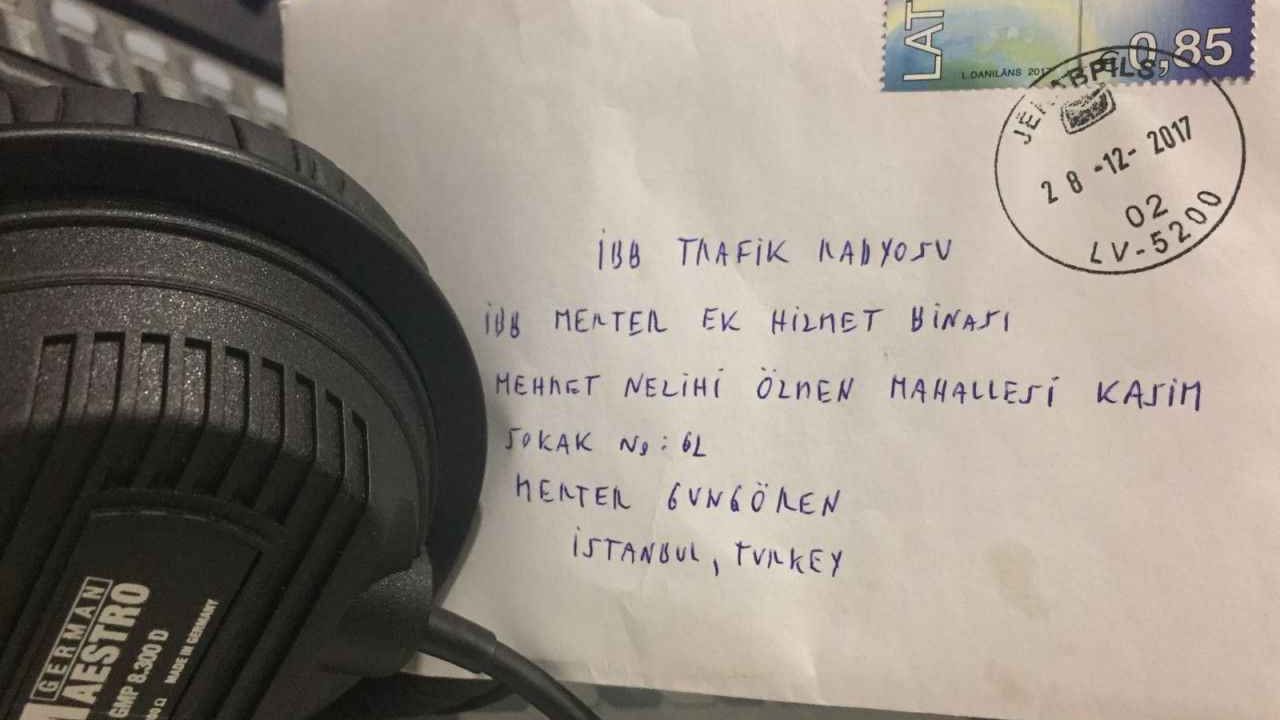 LAT
L.DANILĀNS 2017
€0,85
JĒKABPILS
28-12-2017
02
LV-5200
İBB TRAFİK RADYOSU
İBB MERTER EK HİZMET BİNASI
MEHMET NEZİHİ ÖZMEN MAHALLESİ KASIM
SOKAK No: 62
MERTER GUNGÖREN
İSTANBUL, TURKEY
GERMAN
MAESTRO
GMP 8.300 D
MADE IN GERMANY